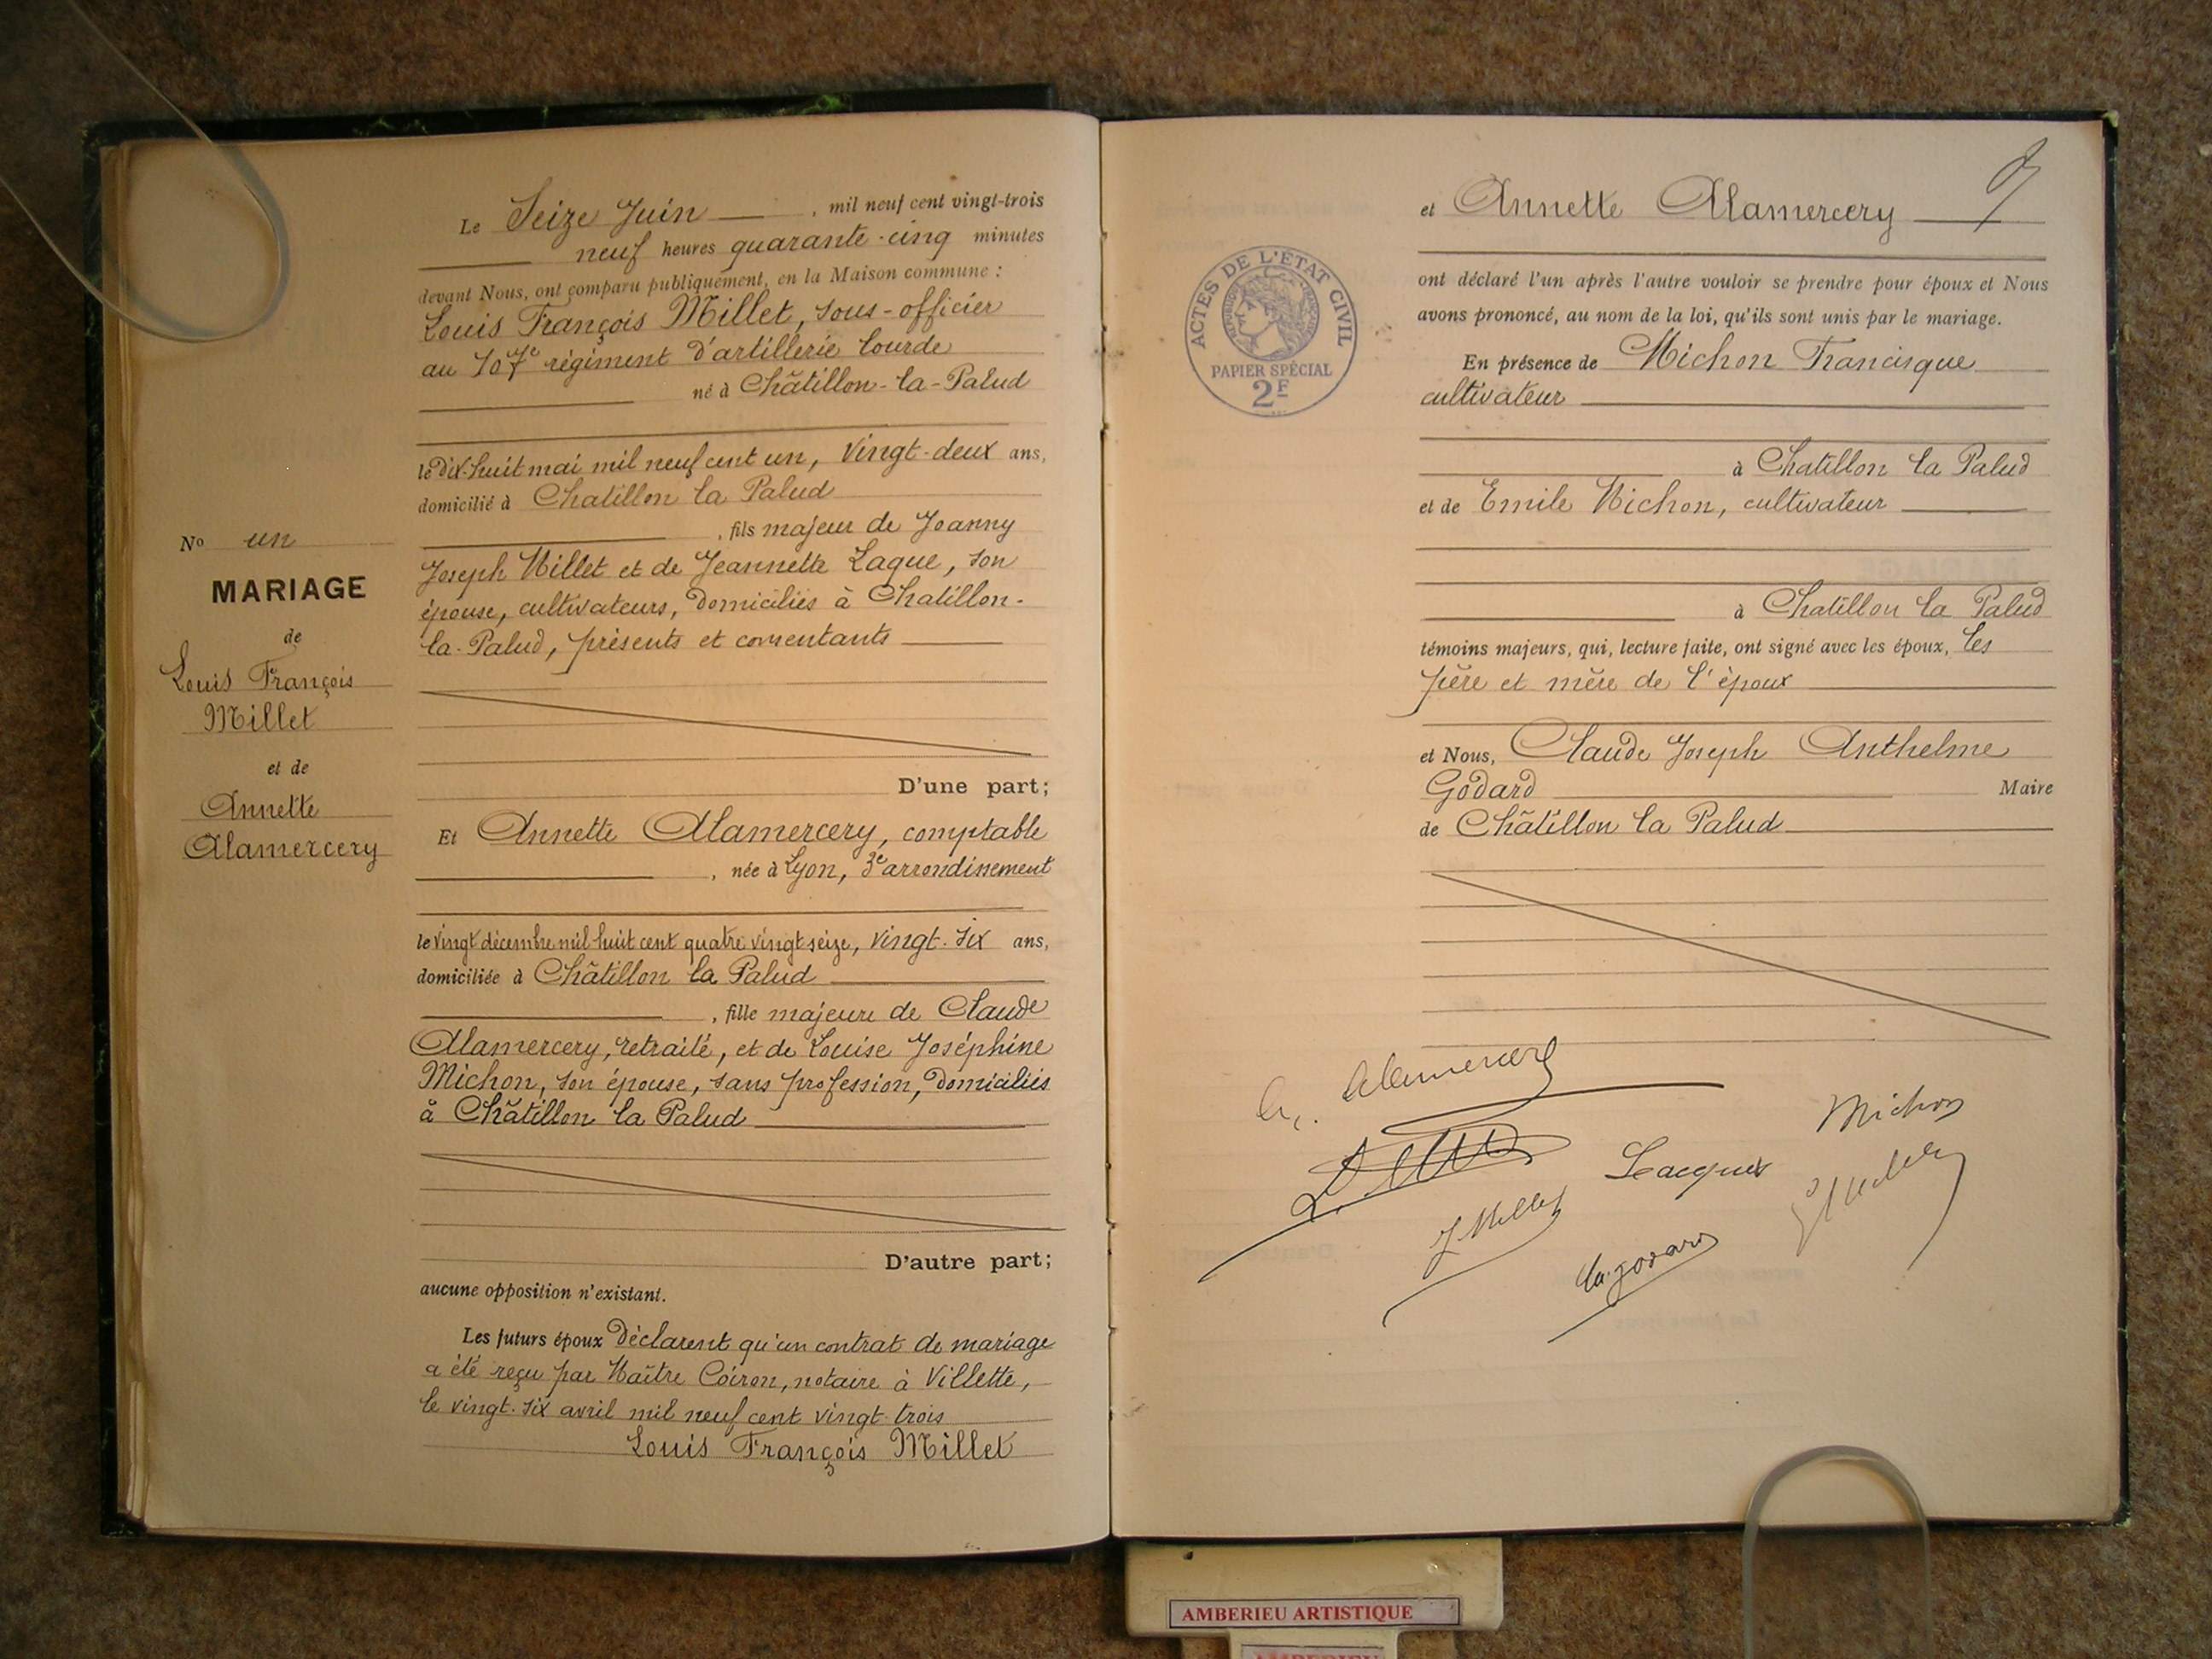 N° un
MARIAGE
de
Louis François
Millet
et de
Annette
Alamercery
Le Seize Juin, mil neuf cent vingt-trois
neuf heures quarante-cinq minutes
devant Nous, ont comparu publiquement, en la Maison commune :
Louis François Millet, sous-officier
au 107e régiment d'artillerie lourde
né à Châtillon-la-Palud
le dix-huit mai mil neuf cent un, vingt-deux ans,
domicilié à Chatillon la Palud
, fils majeur de Joanny
Joseph Millet et de Jeannette Laque, son
épouse, cultivateurs, domiciliés à Chatillon-
la-Palud, présents et consentants
D'une part;
Et Annette Alamercery, comptable
, née à Lyon, 3e arrondissement
le vingt décembre mil huit cent quatre vingt seize, vingt-six ans,
domiciliée à Châtillon la Palud
, fille majeure de Claude
Alamercery, retraité, et de Louise Joséphine
Michon, son épouse, sans profession, domiciliés
à Châtillon la Palud
D'autre part;
aucune opposition n'existant.
Les futurs époux déclarent qu'un contrat de mariage
a été reçu par Maître Coiron, notaire à Villette,
le vingt-six avril mil neuf cent vingt-trois
Louis François Millet
et Annette Alamercery
ont déclaré l'un après l'autre vouloir se prendre pour époux et Nous
avons prononcé, au nom de la loi, qu'ils sont unis par le mariage.
ACTES DE L'ÉTAT CIVIL
RÉPUBLIQUE FRANÇAISE
PAPIER SPÉCIAL
2F
En présence de Michon Francisque
cultivateur
à Chatillon la Palud
et de Emile Michon, cultivateur
à Chatillon la Palud
témoins majeurs, qui, lecture faite, ont signé avec les époux, les
père et mère de l'époux
et Nous, Claude Joseph Anthelme
Godard Maire
de Châtillon la Palud
A. Alamercery
Michon
Lacques
J Millet
Cl. Godard
AMBERIEU ARTISTIQUE
AMBERIEU